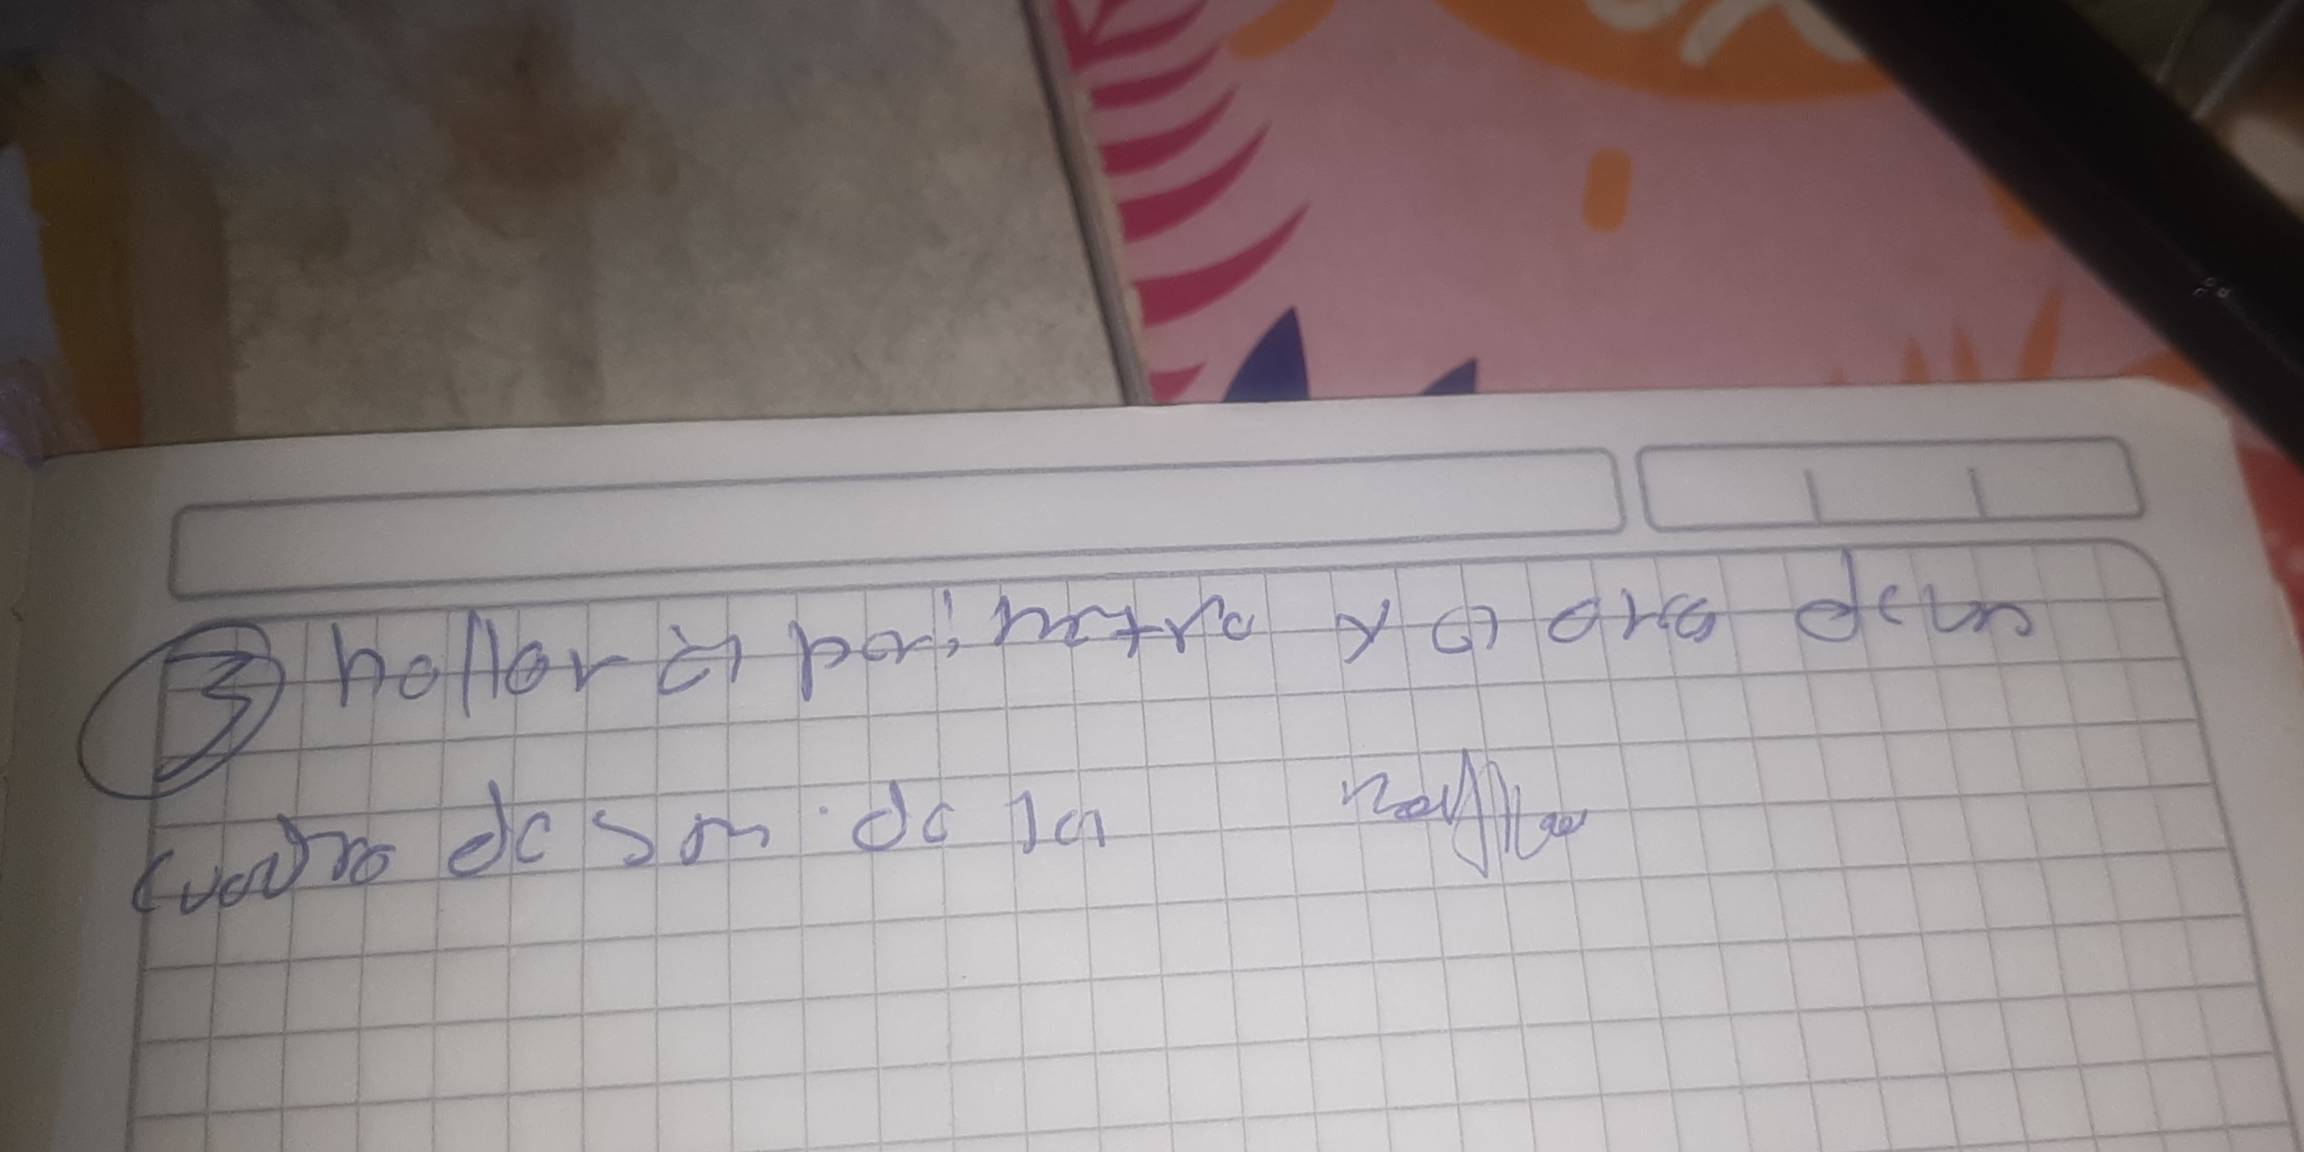 3 hallar el perimetro y el area de un
cuadro de 5 m de la